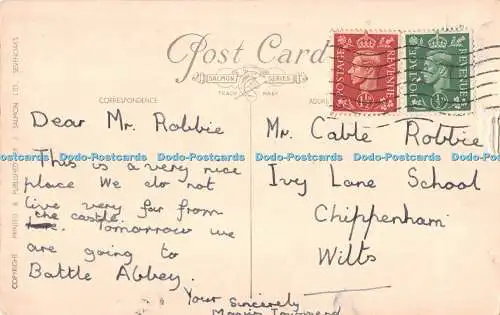 Post Card
SALMON SERIES
TRADE MARK
CORRESPONDENCE
ADDRESS
COPYRIGHT PRINTED & PUBLISHED SALMON LTD. SEVENOAKS
POSTAGE REVENUE
POSTAGE REVENUE
Dear Mr. Robbie
This is a very nice
place We do not
live very far from
the castle.
Tomorrow we
are going to
Battle Abbey.
Your Sincerely
Townsend
Mr. Cable Robbie
Ivy Lane School
Chippenham
Wilts
Dodo-Postcards Dodo-Postcards Dodo-Postcards Dodo-Postcards Dodo-Postcards Dodo-Postcards